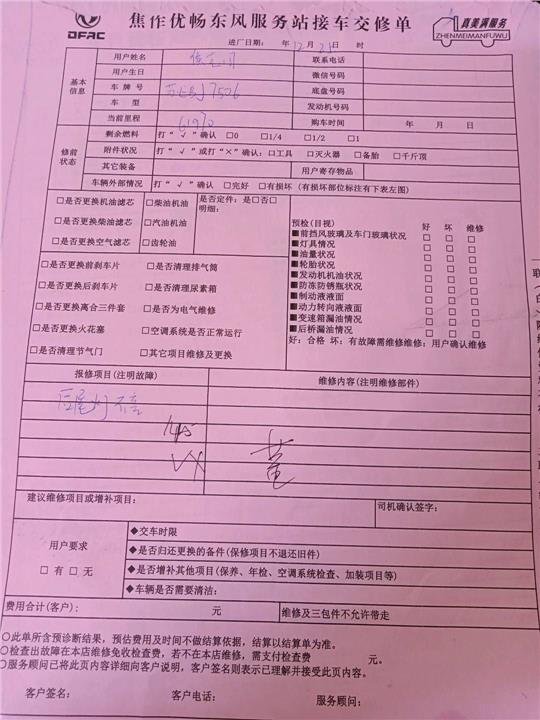 DFAC
焦作优畅东风服务站接车交修单
真美满服务
ZHENMEIMANFUWU
进厂日期： 年 12 月 21 日 时
基本信息
用户姓名
联系电话
用户生日
微信号码
车牌号 7506
底盘号码
车型
发动机号码
当前里程 61970
购车时间 年 月 日
修前状态
剩余燃料 打“√”确认 □0 □1/4 □1/2 □1
附件状况 打“√”或打“×”确认：□工具 □灭火器 □备胎 □千斤顶
其它装备
用户寄存物品
车辆外部情况 打“√”确认 □完好 □有损坏（有损坏部位标注有下表左图）
□是否更换机油滤芯 □柴油机油
□是否更换柴油滤芯 □汽油机油
□是否更换空气滤芯 □齿轮油
是否定件：是□否□
明细：
□是否更换前刹车片 □是否清理排气筒
□是否更换后刹车片 □是否清理尿素箱
□是否更换离合三件套 □是否为电气维修
□是否更换火花塞 □空调系统是否正常运行
□是否清理节气门 □其它项目维修及更换
预检（目视） 好 坏 维修
■前挡风玻璃及车门玻璃状况 □ □ □
■灯具情况 □ □ □
■油量状况 □ □ □
■轮胎状况 □ □ □
■发动机机油状况 □ □ □
■防冻防锈瓶状况 □ □ □
■制动液液面 □ □ □
■动力转向液液面 □ □ □
■变速箱漏油情况 □ □ □
■后桥漏油情况 □ □ □
好：合格 坏：有故障需维修维修：用户确认维修
报修项目（注明故障）
维修内容（注明维修部件）
后尾灯不亮
建议维修项目或增补项目：
司机确认签字：
用户要求
□ 有 □ 无
◆交车时限
◆是否归还更换的备件（保修项目不退还旧件）
◆是否增补其他项目（保养、年检、空调系统检查、加装项目等）
◆车辆是否需要清洁：
费用合计（客户）： 元
维修及三包件不允许带走
○此单所含预诊断结果，预估费用及时间不做结算依据，结算以结算单为准。
○检查出故障在本店维修免收检查费，若不在本店维修，需支付检查费 元。
○服务顾问已将此页内容详细向客户说明，客户签名则表示已理解并接受此页内容。
客户签名： 客户电话： 服务顾问：